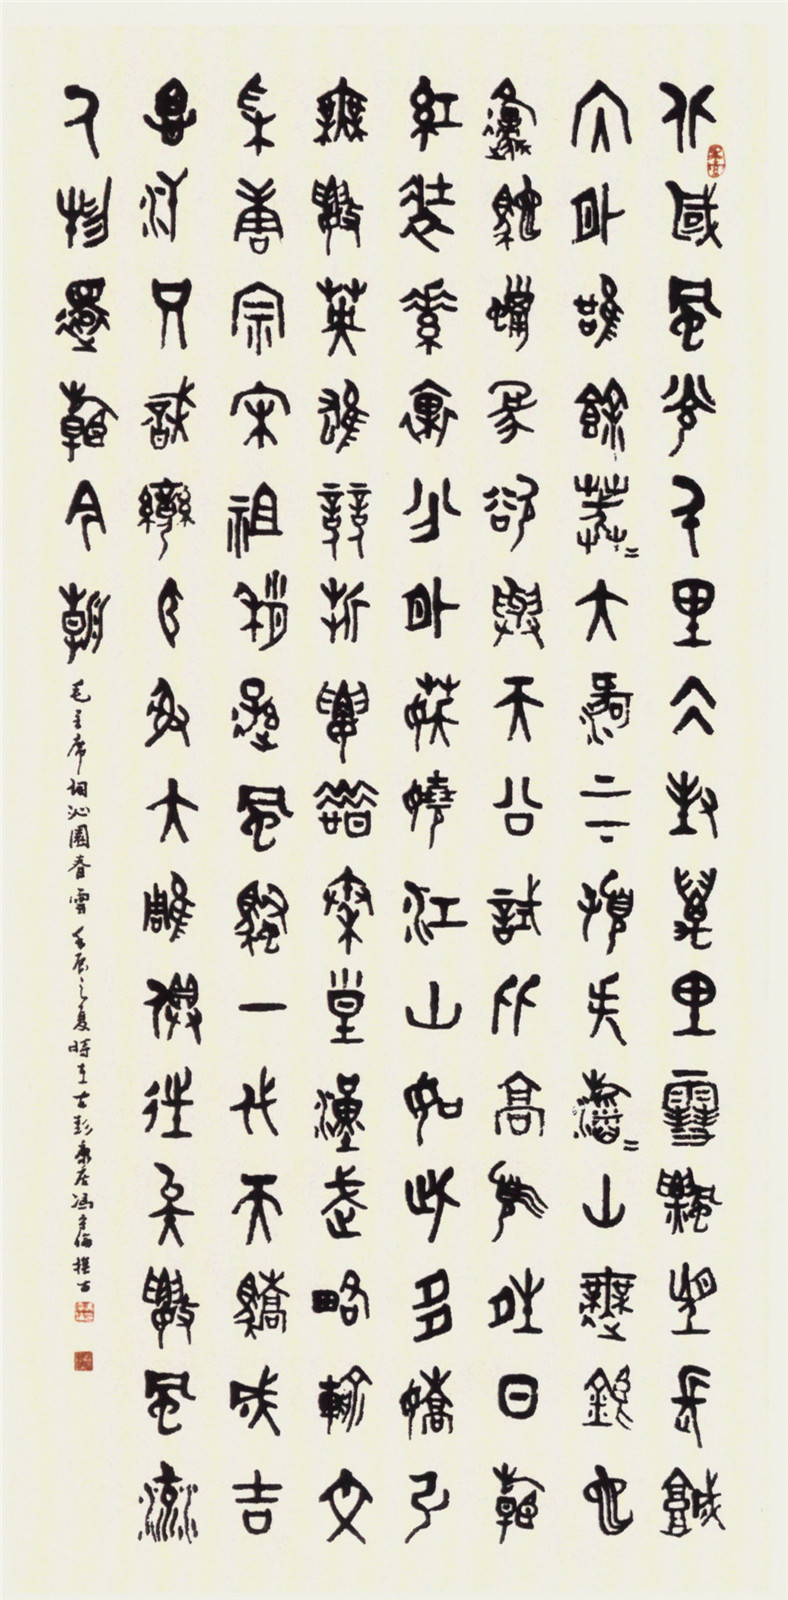 北國風光千里冰封萬里雪飄望長城
內外惟餘莽〻大河上下頓失滔〻山舞銀蛇
原馳蠟象欲與天公試比高須晴日看
紅裝素裹分外妖嬈江山如此多嬌引
無數英雄競折腰惜秦皇漢武略輸文
采唐宗宋祖稍遜風騷一代天驕成吉
思汗只識彎弓射大雕俱往矣數風流
人物還看今朝
毛主席词沁園春雪 壬辰之夏時於古彭康居馮